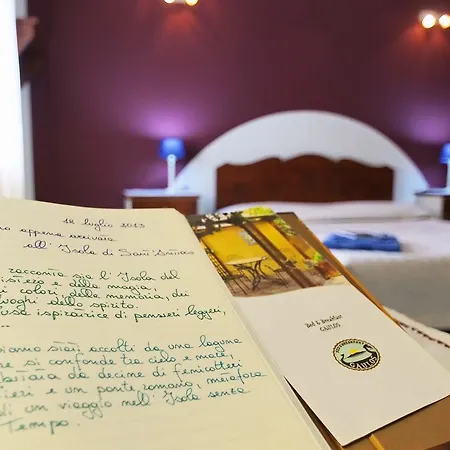 12 luglio 2013
appena arrivata
all' Isola di Sant'
racconta sia l'Isola del
e della magia,
colori della memoria, dei
luoghi dello spirito.
ispiratrice di pensieri leggeri,
...
accolti da una laguna
si confonde tra cielo e mare,
da decine di fenicotteri
e un ponte romano, metafora
di un viaggio nell'Isola senza
Tempo.
Bed & Breakfast
GAULOS
GAULOS